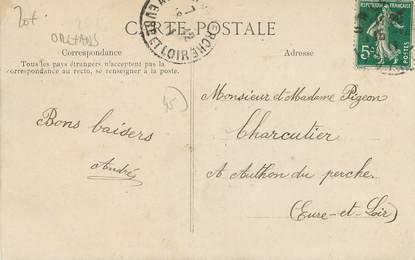 CARTE POSTALE
ORLEANS
Correspondance
Adresse
Tous les pays étrangers n'acceptent pas la
correspondance au recto, se renseigner à la poste.
RÉPUBLIQUE FRANÇAISE
5c
POSTES
Monsieur et Madame Pigeon
Charcutier
A Authon du perche
(Eure-et-Loir)
Bons baisers
André